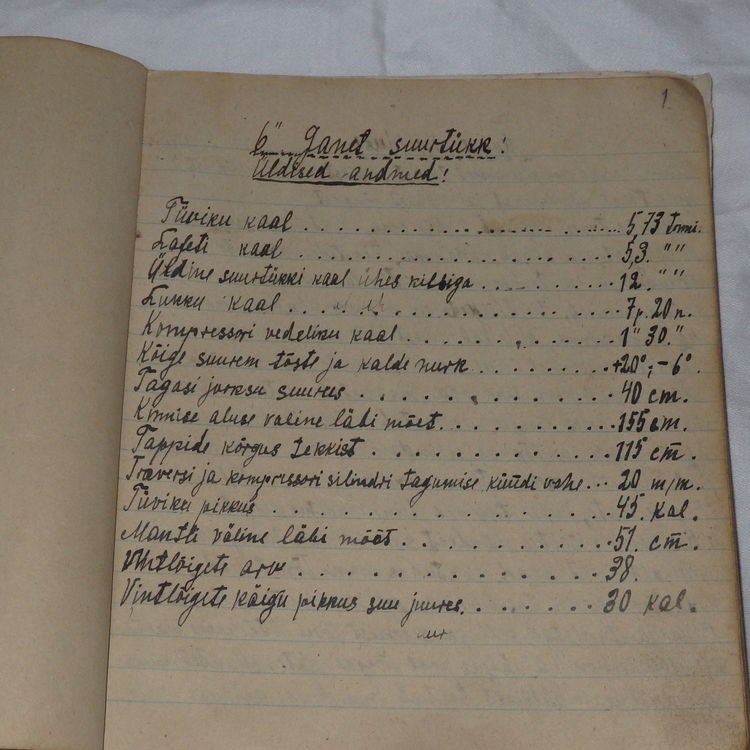 1
6" Ganet suurtükk!
Üldised andmed!
Tüviku kaal . . . . . . . . . . . . . . . . . . . . 5,73 tonni.
Lafeti kaal . . . . . . . . . . . . . . . . . . . . 5,3. " "
Üldine suurtükki kaal ühes kilbiga . . . . . . . 12. " "
Lukku kaal . . . . . . . . . . . . . . . . . 7p. 20n.
Kompressori vedeliku kaal . . . . . . . . . . 1" 30."
Kõige suurem tõste ja kalde nurk . . . . . . . +20°; -6°.
Tagasi jooksu suurus . . . . . . . . . . . . 40 cm.
Kinnise aluse väline läbi mõet . . . . . . . . 155 cm.
Tappide kõrgus tekkist . . . . . . . . . . . 115 cm.
Traversi ja kompressori silindri tagumise küüdi vahe . . . 20 m/m.
Tüviku pikkus . . . . . . . . . . . . . . . . 45. kal.
Mantli väline läbi mõõt . . . . . . . . . . . 51. cm.
Vintlõigete arv . . . . . . . . . . . . . . . 38.
Vintlõigete käigu pikkus suu juures . . . . . . . 30 kal.